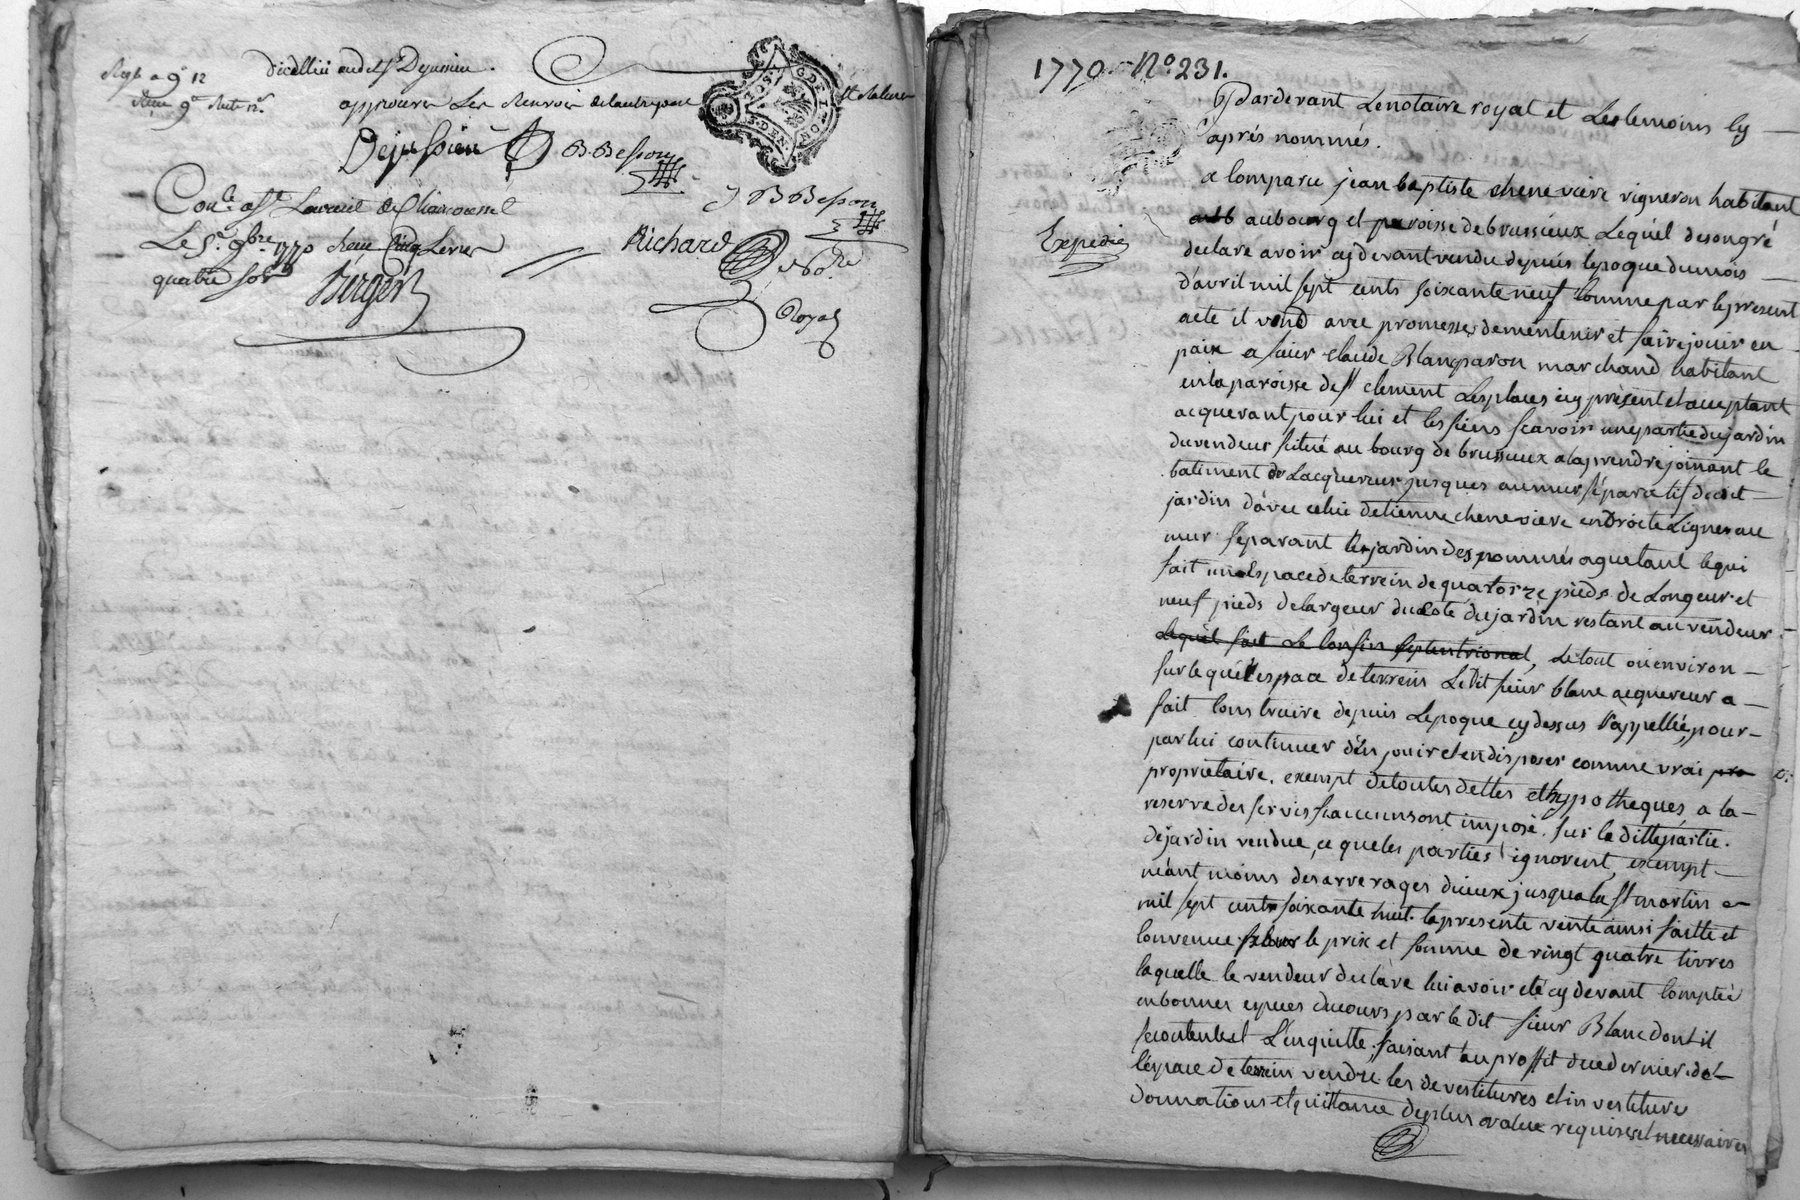 d'icelluy audit Sr Dejussieu.
approuvé les renvois de lautre part
Dejussieu
B. Besson
B Besson
Le 5e 9bre 1770 Reçu Cinq Livres
quatre sols
Berger
Richard
Royal
GD. ET. MON
1770 No 231.
Pardevant Le notaire royal et Les temoins cy
après nommés.
Expedié
a Comparu jean baptiste chenevière vigneron habitant
au bourg et paroisse de brussieux Lequel de son gré
declare avoir cy devant vendu depuis lepoque du mois
d'avril mil sept cents soixante neuf Comme par le present
acte il vend avec promesse de mentenir et faire jouir en
paix a sieur Claude Blanc garon marchand habitant
en la paroisse de st clement Les places icy présent et acceptant
acquerant pour lui et les siens scavoir une partie du jardin
du vendeur scitué au bourg de brussieux a la prendre joinant le
batiment de Lacquereur jusques au mur séparatif dudit
jardin d'avec celui detienne chenevière en droite Ligne au
mur separant les jardins des nommés aguetant le qui
fait un Espace de terrein de quatorze pieds de Longeur et
neuf pieds de largeur du coté du jardin restant au vendeur
Lequel fait Le Confin septentrional, Le tout ou environ
sur lequel espace de terrein Ledit sieur blanc acquereur a
fait Construire depuis Lepoque cy dessus rappellée, pour
par lui continuer dèn jouir et en disposer comme vrai pro
propriétaire, exempt de toutes dettes et hypotheques, a la
reserve des servis si aucuns sont imposé sur la ditte partie
de jardin vendue, ce que les parties ignorent, exempt
néant moins des arrerages diceux jusqua la st martin
mil sept cents soixante huit. la presente vente ainsi faitte et
Convenue pour le prix et somme de vingt quatre livres
laquelle le vendeur declare lui avoir eté cy devant Comptée
en bonnes espèces du cours par le dit sieur Blanc dont il
se contente et L'en quitte, faisant au proffit de ce dernier de
lèspace de terrein vendu les devestitures et investiture
donnations et quittance de plus value requises et necessaires